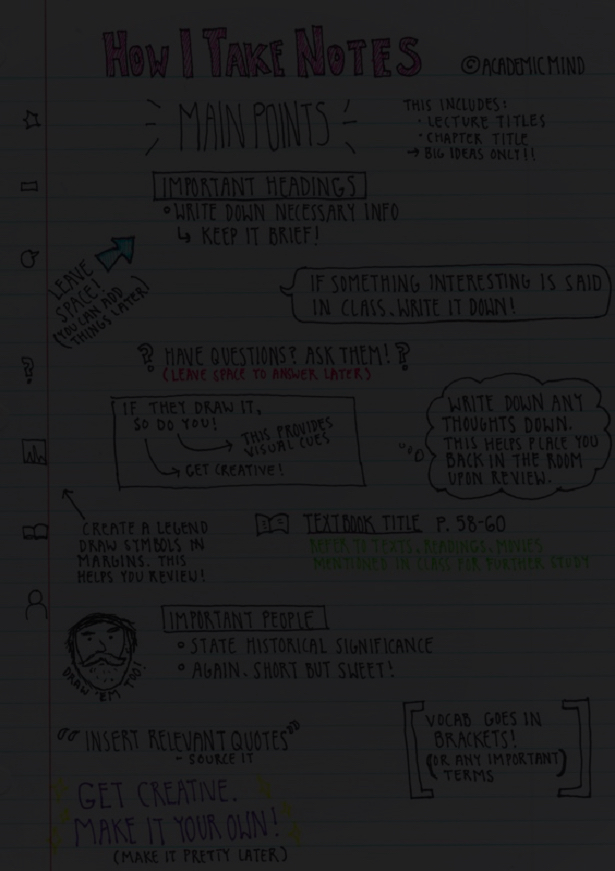 HOW I TAKE NOTES
©ACADEMICMIND
MAIN POINTS
THIS INCLUDES:
· LECTURE TITLES
· CHAPTER TITLE
→ BIG IDEAS ONLY!!
IMPORTANT HEADINGS
• WRITE DOWN NECESSARY INFO
↳ KEEP IT BRIEF!
LEAVE
SPACE!
(YOU CAN ADD
THINGS LATER)
IF SOMETHING INTERESTING IS SAID
IN CLASS, WRITE IT DOWN!
? HAVE QUESTIONS? ASK THEM! ?
(LEAVE SPACE TO ANSWER LATER)
IF THEY DRAW IT,
SO DO YOU!
THIS PROVIDES
VISUAL CUES
GET CREATIVE!
WRITE DOWN ANY
THOUGHTS DOWN.
THIS HELPS PLACE YOU
BACK IN THE ROOM
UPON REVIEW.
CREATE A LEGEND
DRAW SYMBOLS IN
MARGINS. THIS
HELPS YOU REVIEW!
TEXTBOOK TITLE P. 58-60
REFER TO TEXTS, READINGS, MOVIES
MENTIONED IN CLASS FOR FURTHER STUDY
IMPORTANT PEOPLE
• STATE HISTORICAL SIGNIFICANCE
• AGAIN, SHORT BUT SWEET!
DRAW 'EM TOO!
"INSERT RELEVANT QUOTES"
- SOURCE IT
[VOCAB GOES IN
BRACKETS!
(OR ANY IMPORTANT)
TERMS]
GET CREATIVE.
MAKE IT YOUR OWN!
(MAKE IT PRETTY LATER)